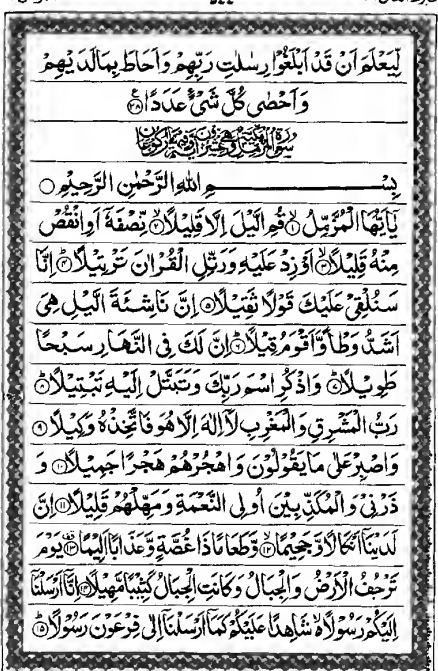 لِّيَعْلَمَ اَنْ قَدْ اَبْلَغُوْا رِسٰلٰتِ رَبِّهِمْ وَاَحَاطَ بِمَا لَدَيْهِمْ
وَاَحْصٰى كُلَّ شَىْءٍ عَدَدًا ﴿۲۸﴾
بِسْمِ اللهِ الرَّحْمٰنِ الرَّحِيْمِ ○
يٰۤاَيُّهَا الْمُزَّمِّلُ ﴿۱﴾ قُمِ الَّيْلَ اِلَّا قَلِيْلًا ﴿۲﴾ نِّصْفَهٗۤ اَوِ انْقُصْ
مِنْهُ قَلِيْلًا ﴿۳﴾ اَوْ زِدْ عَلَيْهِ وَرَتِّلِ الْقُرْاٰنَ تَرْتِيْلًا ﴿۴﴾ اِنَّا
سَنُلْقِىْ عَلَيْكَ قَوْلًا ثَقِيْلًا ﴿۵﴾ اِنَّ نَاشِئَةَ الَّيْلِ هِىَ
اَشَدُّ وَطْاً وَّاَقْوَمُ قِيْلًا ﴿۶﴾ اِنَّ لَكَ فِى النَّهَارِ سَبْحًا
طَوِيْلًا ﴿۷﴾ وَاذْكُرِ اسْمَ رَبِّكَ وَتَبَتَّلْ اِلَيْهِ تَبْتِيْلًا ﴿۸﴾
رَبُّ الْمَشْرِقِ وَالْمَغْرِبِ لَاۤ اِلٰهَ اِلَّا هُوَ فَاتَّخِذْهُ وَكِيْلًا ﴿۹﴾
وَاصْبِرْ عَلٰى مَا يَقُوْلُوْنَ وَاهْجُرْهُمْ هَجْرًا جَمِيْلًا ﴿۱۰﴾ وَ
ذَرْنِىْ وَالْمُكَذِّبِيْنَ اُولِى النَّعْمَةِ وَمَهِّلْهُمْ قَلِيْلًا ﴿۱۱﴾ اِنَّ
لَدَيْنَاۤ اَنْكَالًا وَّجَحِيْمًا ﴿۱۲﴾ وَّطَعَامًا ذَا غُصَّةٍ وَّعَذَابًا اَلِيْمًا ﴿۱۳﴾ يَوْمَ
تَرْجُفُ الْاَرْضُ وَالْجِبَالُ وَكَانَتِ الْجِبَالُ كَثِيْبًا مَّهِيْلًا ﴿۱۴﴾ اِنَّاۤ اَرْسَلْنَاۤ
اِلَيْكُمْ رَسُوْلًا ۙ شَاهِدًا عَلَيْكُمْ كَمَاۤ اَرْسَلْنَاۤ اِلٰى فِرْعَوْنَ رَسُوْلًا ﴿۱۵﴾